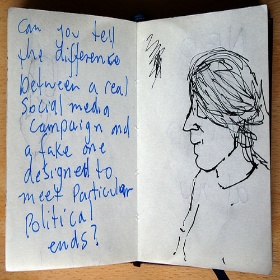 Can you tell
the difference
between a real
Social media
Campaign and
a fake one
designed to
meet Particular
Political
ends?